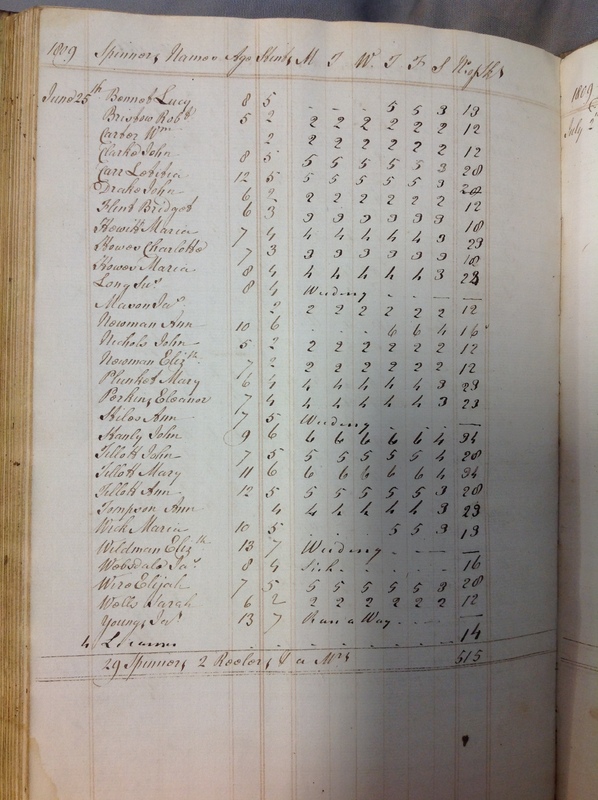 1809 Spinners Names Age Stint M T W T F S Nº of Sks
June 25th Bennet Lucy 8 5 - - - 5 5 3 13
Bristow Robt 5 2 2 2 2 2 2 2 12
Carter Wm 2 2 2 2 2 2 2 12
Clarke John 8 5 5 5 5 5 5 3 28
Carr Letitia 12 5 5 5 5 5 5 3 28
Drake John 6 2 2 2 2 2 2 2 12
Flint Bridget 6 3 3 3 3 3 3 3 18
Hewitt Maria 7 4 4 4 4 4 4 3 23
Howes Charlotte 7 3 3 3 3 3 3 3 18
Howes Maria 8 4 4 4 4 4 4 3 23
Long Sus 8 4 Weeding - - - —
Mason Jas 2 2 2 2 2 2 2 12
Newman Ann 10 6 - - - 6 6 4 16
Nichols John 5 2 2 2 2 2 2 2 12
Newman Elizth 7 2 2 2 2 2 2 2 12
Plunket Mary 6 4 4 4 4 4 4 3 23
Perkins Eleanor 7 4 4 4 4 4 4 3 23
Ann 7 5 Weeding - - - —
John 9 6 6 6 6 6 6 4 34
Tillott John 7 5 5 5 5 5 5 4 28
Tillott Mary 11 6 6 6 6 6 6 4 34
Tillott Ann 12 5 5 5 5 5 5 3 28
Tompson Ann 4 4 4 4 4 4 3 23
Wick Maria 10 5 - - - 5 5 3 13
Wildman Elizth 13 7 Weeding - - - —
Websdale Jas 8 4 Sick - - - - 16
Wire Elijah 7 5 5 5 5 5 5 3 28
Wells Sarah 6 2 2 2 2 2 2 2 12
Youngs Jas 13 7 Run a Way - - - —
4 Learners - - - - - - - - 14
29 Spinners 2 Reelers & a Mrs 515
1809
July 2